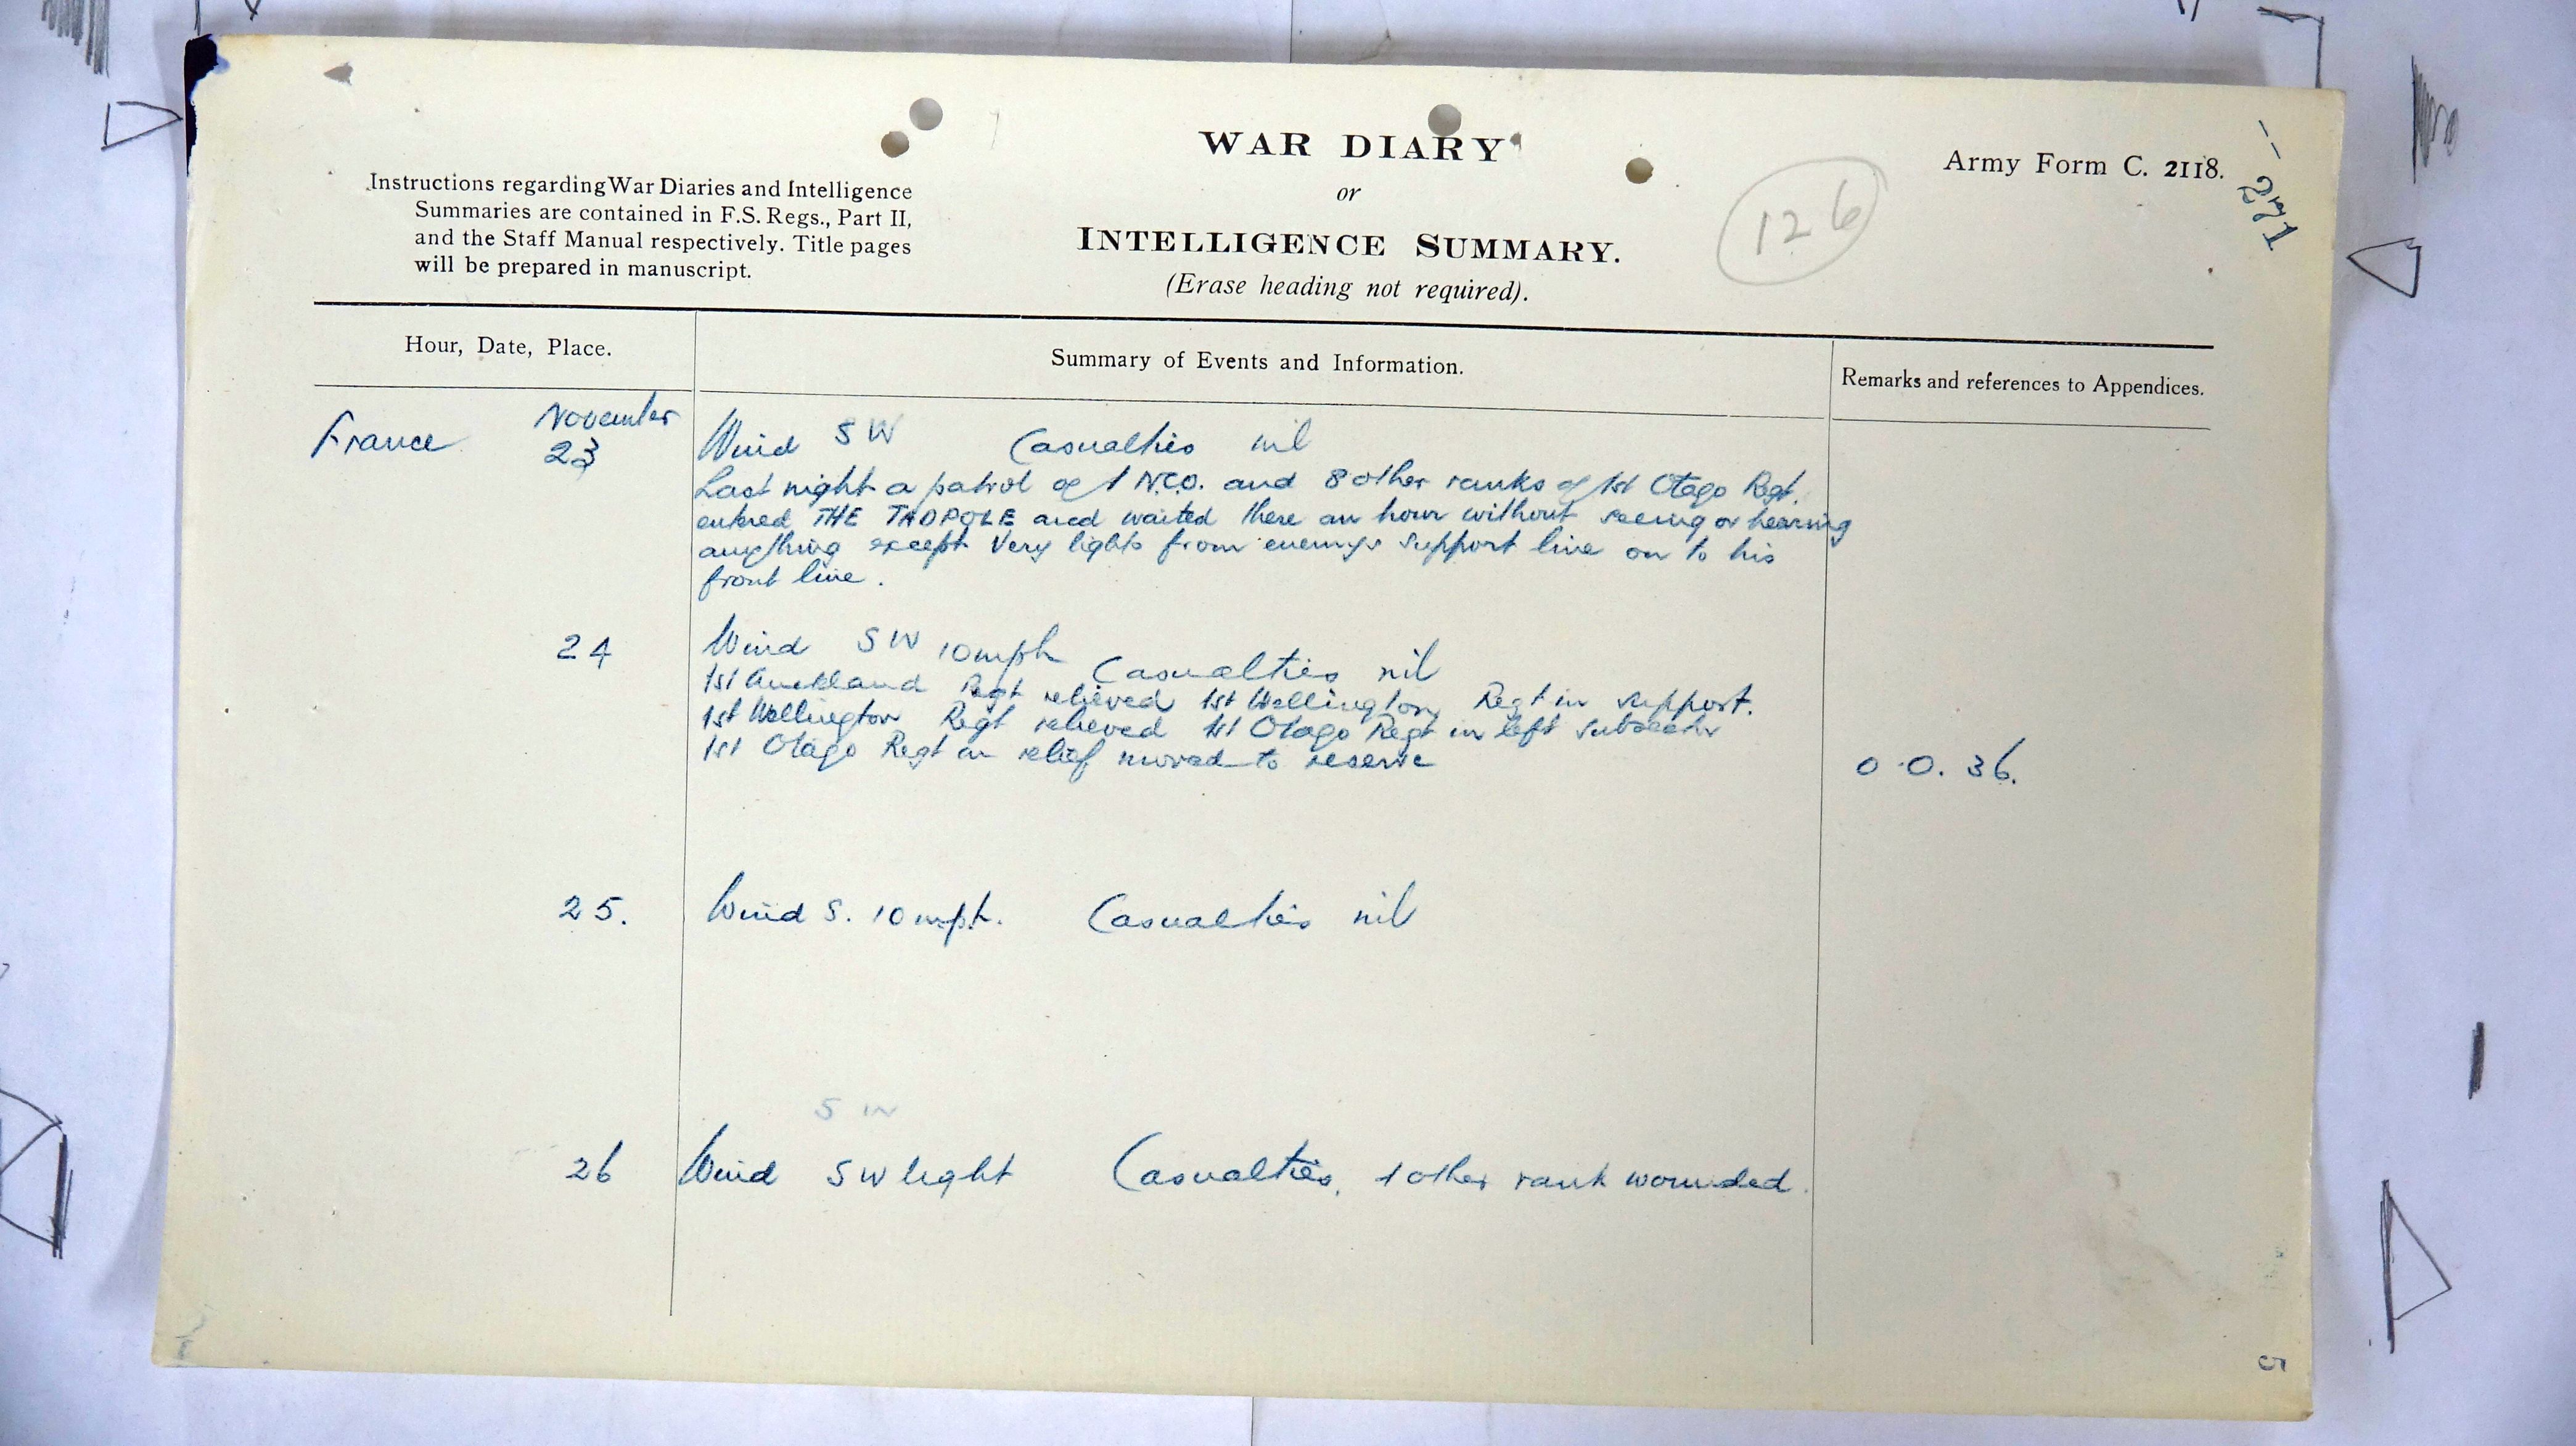 WAR DIARY
or
INTELLIGENCE SUMMARY.
(Erase heading not required).
Instructions regarding War Diaries and Intelligence
Summaries are contained in F.S. Regs., Part II,
and the Staff Manual respectively. Title pages
will be prepared in manuscript.
126
Army Form C. 2118.
Hour, Date, Place.
Summary of Events and Information.
Remarks and references to Appendices.
France November
23
Wind SW Casualties nil
Last night a patrol of 1 N.C.O. and 8 other ranks of 1st Otago Regt.
entered THE TADPOLE and waited there an hour without seeing or hearing
anything except Very lights from enemys support line on to his
front line.
24 Wind SW 10 mph Casualties nil
1st Auckland Regt relieved 1st Wellington Regt in support.
1st Wellington Regt relieved 1st Otago Regt in left subsector
1st Otago Regt on relief moved to reserve
O.O. 36.
25. Wind S. 10 mph. Casualties nil
SW
26 Wind SW light Casualties, 1 other rank wounded.
5